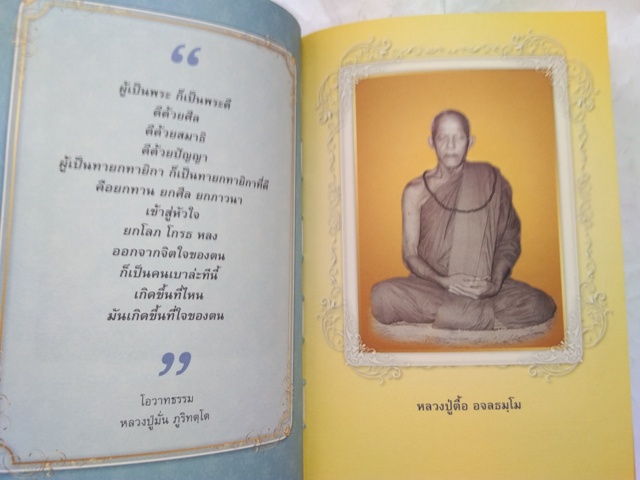 “
ผู้เป็นพระ ก็เป็นพระดี
ดีด้วยศีล
ดีด้วยสมาธิ
ดีด้วยปัญญา
ผู้เป็นทายกทายิกา ก็เป็นทายกทายิกาที่ดี
คือยกทาน ยกศีล ยกภาวนา
เข้าสู่หัวใจ
ยกโลภ โกรธ หลง
ออกจากจิตใจของตน
ก็เป็นคนเบาล่ะทีนี้
เกิดขึ้นที่ไหน
มันเกิดขึ้นที่ใจของตน
”
โอวาทธรรม
หลวงปู่มั่น ภูริทตฺโต
หลวงปู่ตื้อ อจลธมฺโม